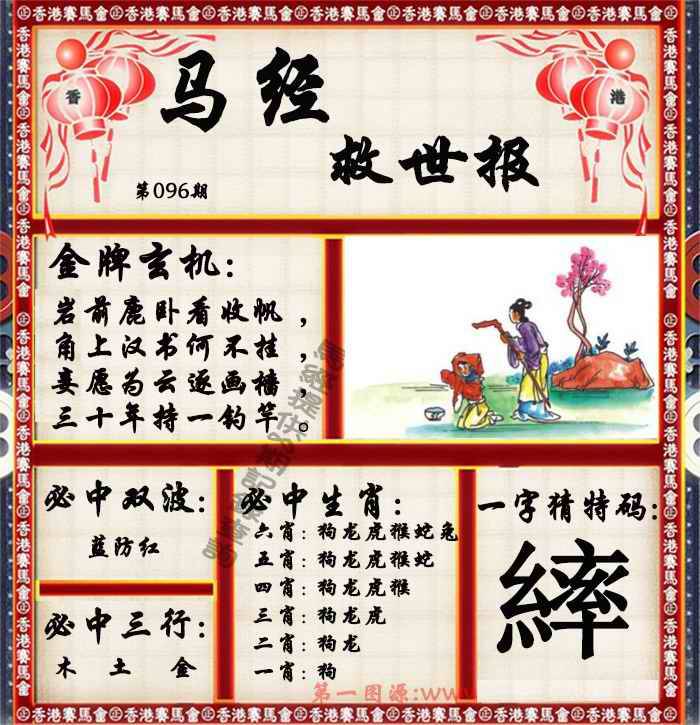 香港賽馬會
香
港
马经
救世报
第096期
金牌玄机：
岩前鹿卧看收帆，
角上汉书何不挂，
妾愿为云逐画樯，
三十年持一钓竿。
必中双波：
蓝防红
必中三行：
木 土 金
必中生肖：
六肖：狗龙虎猴蛇兔
五肖：狗龙虎猴蛇
四肖：狗龙虎猴
三肖：狗龙虎
二肖：狗龙
一肖：狗
一字猜特码：
繂
第一图源:www